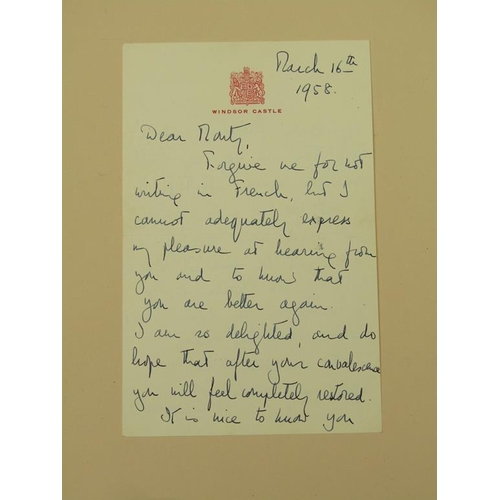 March 16th
1958.
WINDSOR CASTLE
Dear Monty,
Forgive me for not
writing in French, but I
cannot adequately express
my pleasure at hearing from
you and to know that
you are better again.
I am so delighted, and do
hope that after your convalescence
you will feel completely restored.
It is nice to know you